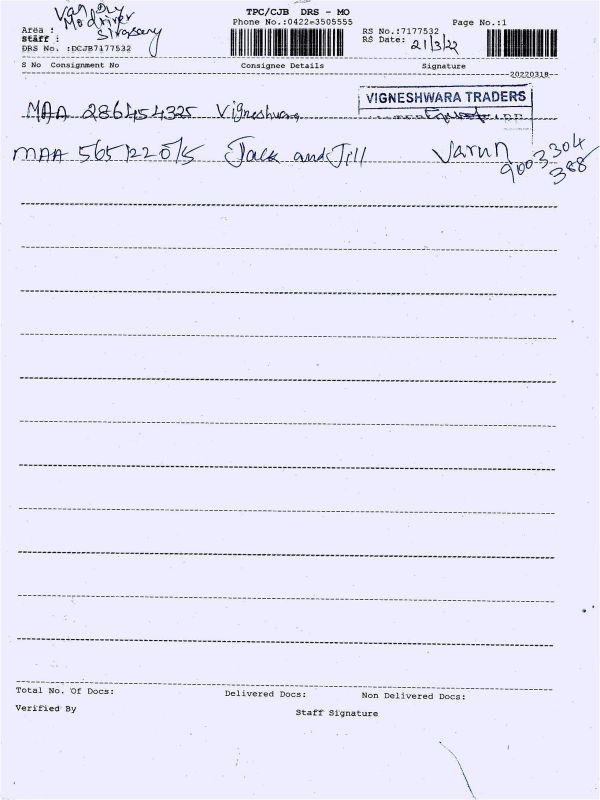 TPC/CJB DRS - MO
Phone No.:0422=3505555 Page No.:1
Area :
Staff :
DRS No. :DCJB7177532
RS No.:7177532
RS Date: 21/3/22
S No Consignment No Consignee Details Signature
20220318
MAA 286454325 Vigneshwara VIGNESHWARA TRADERS
MAA 565122015 Jack and Jill Varun
9003304
388
Total No. Of Docs: Delivered Docs: Non Delivered Docs:
Verified By Staff Signature